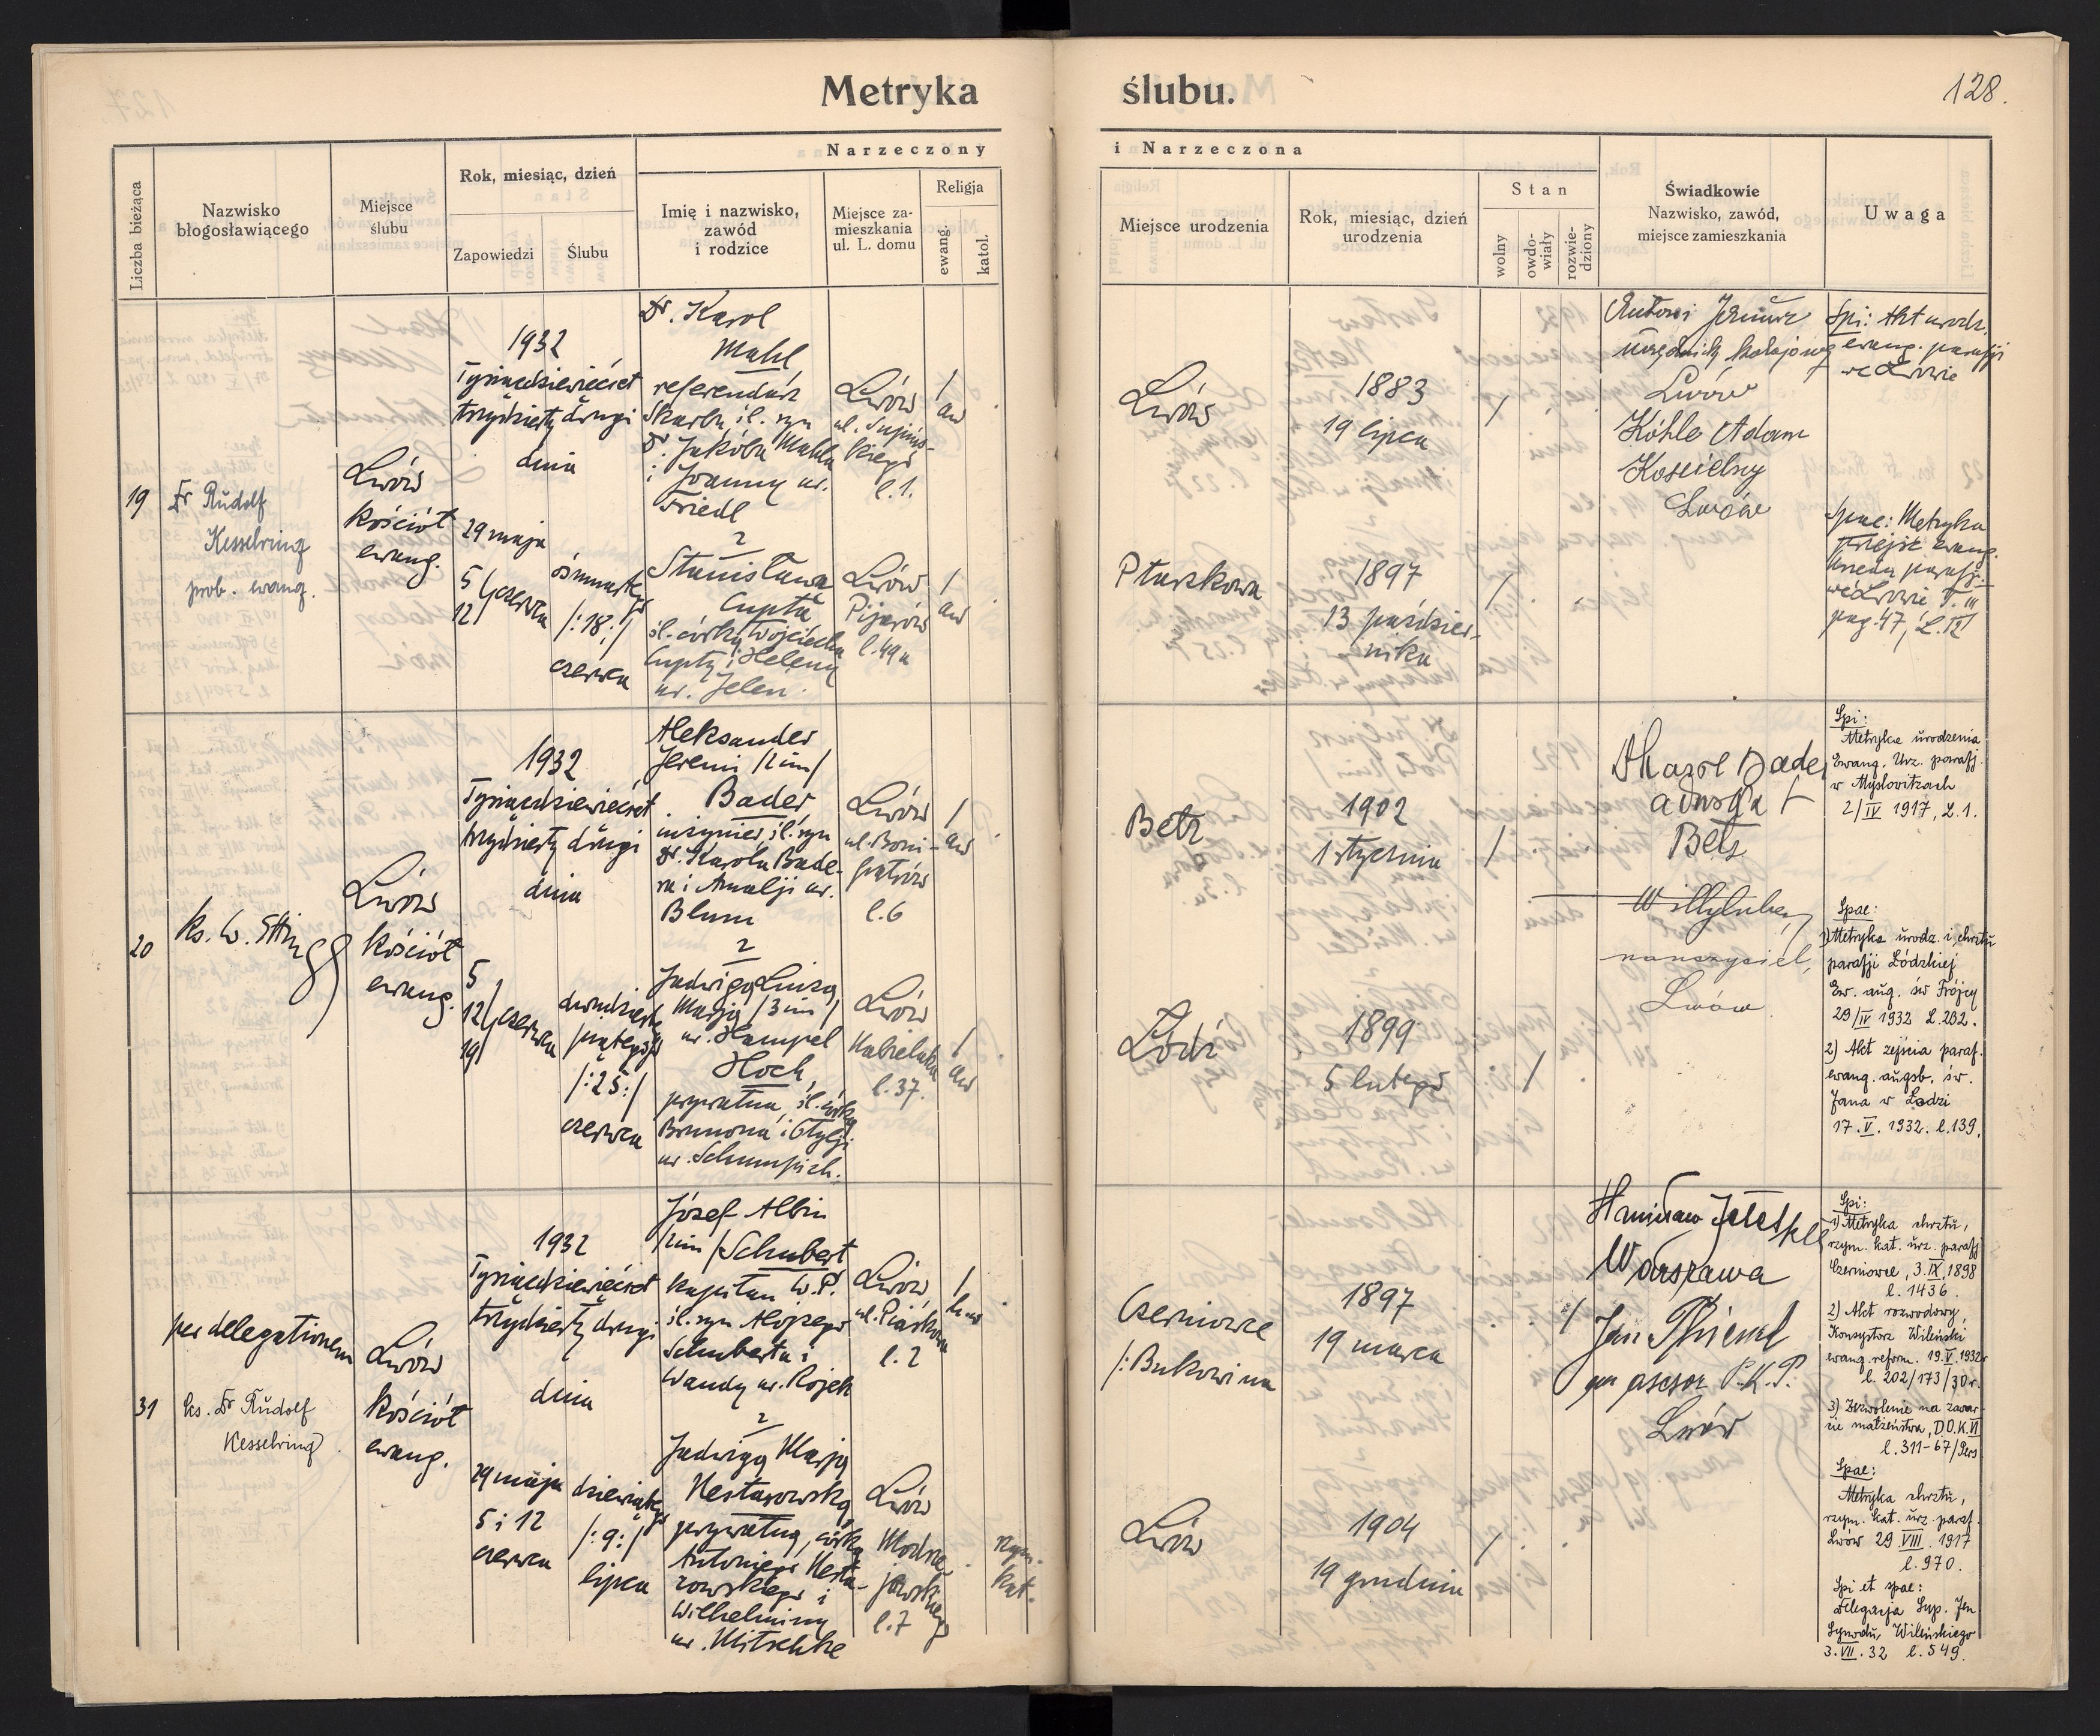 Metryka ślubu.
128.
Narzeczony i Narzeczona
Liczba bieżąca
Nazwisko
błogosławiącego
Miejsce
ślubu
Rok, miesiąc, dzień
Zapowiedzi
Ślubu
Imię i nazwisko,
zawód
i rodzice
Miejsce za-
mieszkania
ul. L. domu
Religja
ewang.
katol.
Miejsce urodzenia
Rok, miesiąc, dzień
urodzenia
Stan
wolny
owdo-
wiały
rozwie-
dziony
Świadkowie
Nazwisko, zawód,
miejsce zamieszkania
Uwaga
19
Dr Rudolf
Kesselring
prob. ewang.
Lwów
kościół
ewang.
1932
Tysiącdziewięćset
trzydziesty drugi
dnia
29 maja
5
12 czerwca
ósmnastego
/:18:/
czerwca
Dr. Karol
Mahl
referendarz
Skarbu śl. syn
Dr. Jakóba Mahla
i Joanny ur.
Friedl
z
Stanisławą
Cuptą
śl. córką Wojciecha
Cupty i Heleny
ur. Jelen.
Lwów
ul. Supińs-
kiego
l. 1.
Lwów
Pijarów
l. 49a
/
aw
/
aw
Lwów
1883
19 lipca
/
Ptaszkowa
1897
13 paździer-
nika
/
Antoni
urzędnik kolejowy
Lwów
Köhle Adam
Kościelny
Lwów
Spi: Akt urodz.
ewang. parafji
we Lwowie
Spae: Metryka
przejść ewang.
urzędu parafj.
we Lwowie T. III
pag. 47, L. IX
20
ks. W.
Lwów
kościół
ewang.
1932
Tysiącdziewięćset
trzydziesty drugi
dnia
5
12 czerwca
19
dwudziestego
piątego
/:25:/
czerwca
Aleksander
Jeremi /2 im/
Bader
inżynier śl. syn
Dr. Karola Bade-
ra i Amalji ur.
Blum
z
Jadwigą Luizą
Marją /3 im/
ur. Hampel
Hoch,
prywatna, śl. córką
Brunona i Otylji
ur. Schumpich.
Lwów
ul. Boni-
fratrów
l. 6
Lwów
Kubielaka
l. 37.
/
aw
/
aw
Bełz
1902
1 stycznia
/
Łódź
1899
5 lutego
/
Dr Karol Bader
adwokat
Bełz
nauczyciel,
Lwów
Spi:
Metryka urodzenia
Ewang. Urz. parafj.
w Mysłowitzach
2/IV 1917, L. 1.
Spae:
1) Metryka urodz. i chrztu
parafji Łódzkiej
Ew. aug. św Trójcy
29/IV 1932 L. 232.
2) Akt zejścia paraf.
ewang. augsb. św.
Jana w Łodzi
17. V. 1932. l. 139.
31
per delegationem
ks. Dr Rudolf
Kesselring.
Lwów
kościół
ewang.
1932
Tysiącdziewięćset
trzydziesty drugi
dnia
29 maja
5 i 12
czerwca
dziewiątego
/:9:/
lipca
Józef Albin
/2 im/ Schubert
kapitan W. P.
śl. syn Alojzego
Schuberta i
Wandy ur. Rojek
z
Jadwigą Marją
Nestarowską
prywatną, córką
Antoniego Nesta-
rowskiego i
Wilhelminy
ur. Nitschke
Lwów
ul. Piaskowa
l. 2
Lwów
Modrze-
jewskiej
l. 7
/
rzym.
kat.
Czerniowce
/:Bukowina
1897
19 marca
/
Lwów
1904
19 grudnia
/
Stanisław
Warszawa
Jan
asesor P.K.P.
Lwów
Spi:
1) Metryka chrztu,
rzym. kat. urz. parafj
Czerniowce, 3. IX. 1898
l. 1436.
2) Akt rozwodowy,
Konsystorz Wileński
ewang. reform. 19. V. 1932r
l. 202/173/30 r.
3) Zezwolenie na zawar-
cie małżeństwa, D.O.K. VI
l. 311-67/Pers
Spae:
Metryka chrztu,
rzym. kat. urz. paraf.
Lwów 29. VIII. 1917
l. 970.
Spi et spae:
Delegacja Sup. Jen
Synodu, Wileńskiego
3. VII. 32 l. 549.